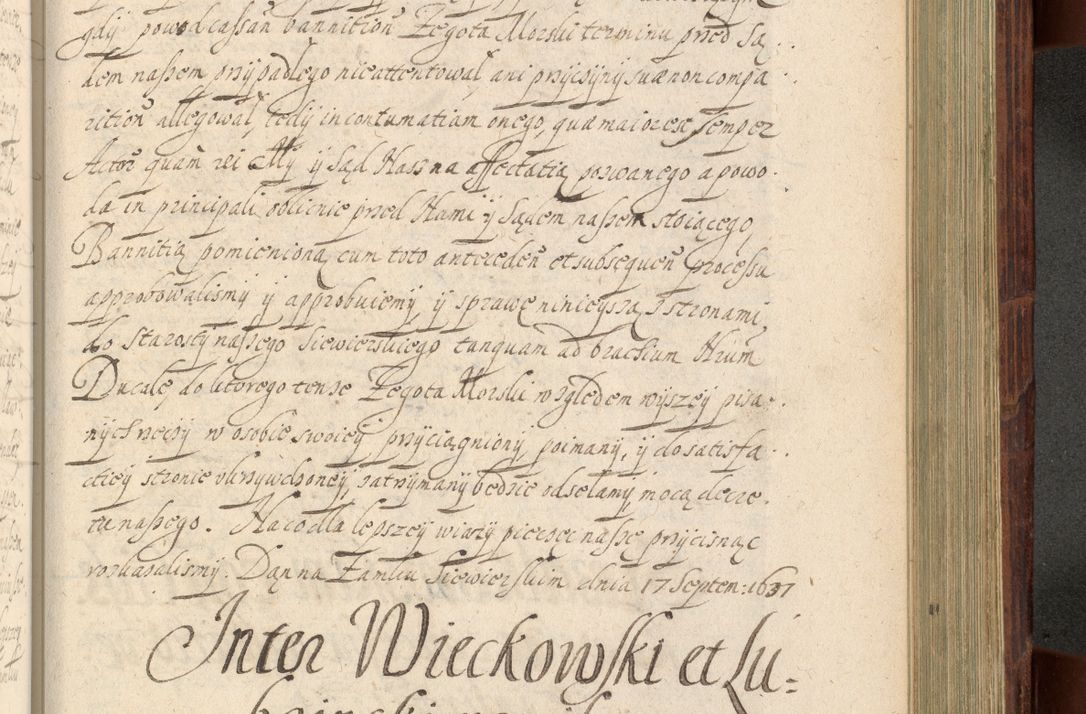 gdÿ powod cassan̄ bannition̄ Zegota Morski terminu przed Są
dem naszem przÿpadłego nieattentował, ani przÿczÿnÿ suæ non compa
rition̄ allegował, tedÿ in contumatiam onego, quæ maior est semper
Actor̄ quam rei Mÿ ÿ Sąd Nasz na affectatią pozwanego a powo
da in principali oblicznie przed Nami ÿ Sądem naszem stoiącego,
Bannitią pomienioną cum toto anteceden̄ et subsequen̄ processu
approbowalismÿ ÿ approbuiemÿ, ÿ sprawę ninieÿszą z stronami
do Starostÿ naszego Siewierskiego tanquam ad brachium Nrum̄
Ducale, do ktorego tenze Zegota Morski względem wÿszeÿ pisa
nÿch rzeczÿ w osobie swoieÿ przÿciągnionÿ, poimanÿ, ÿ do satisfa
ctieÿ stronie ukrzÿwdzoneÿ, zatrzÿmanÿ będzie odsełamÿ mocą decre
tu naszego. Na co dla lepszeÿ wiarÿ pieczęć naszę przÿcisnąc
roskazalismÿ. Dan na Zamku Siewierskim dnia 17 Septem: 1637
Inter Wieckowski et Lu=